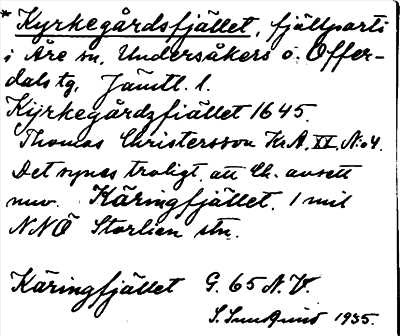 * Kyrkegårdsfjället, fjällparti
i Åre sn, Undersåkers o. Offer-
dals tg, Jämtl. l.
Kijrkegårdzfiället 1645.
Thomas Christersson Kr.A. XX No 4.
Det synes troligt, att Ch. avsett
nuv. Käringfjället, 1 mil
NNÖ Storlien stn.
Käringfjället G. 65 N.V.
1935.